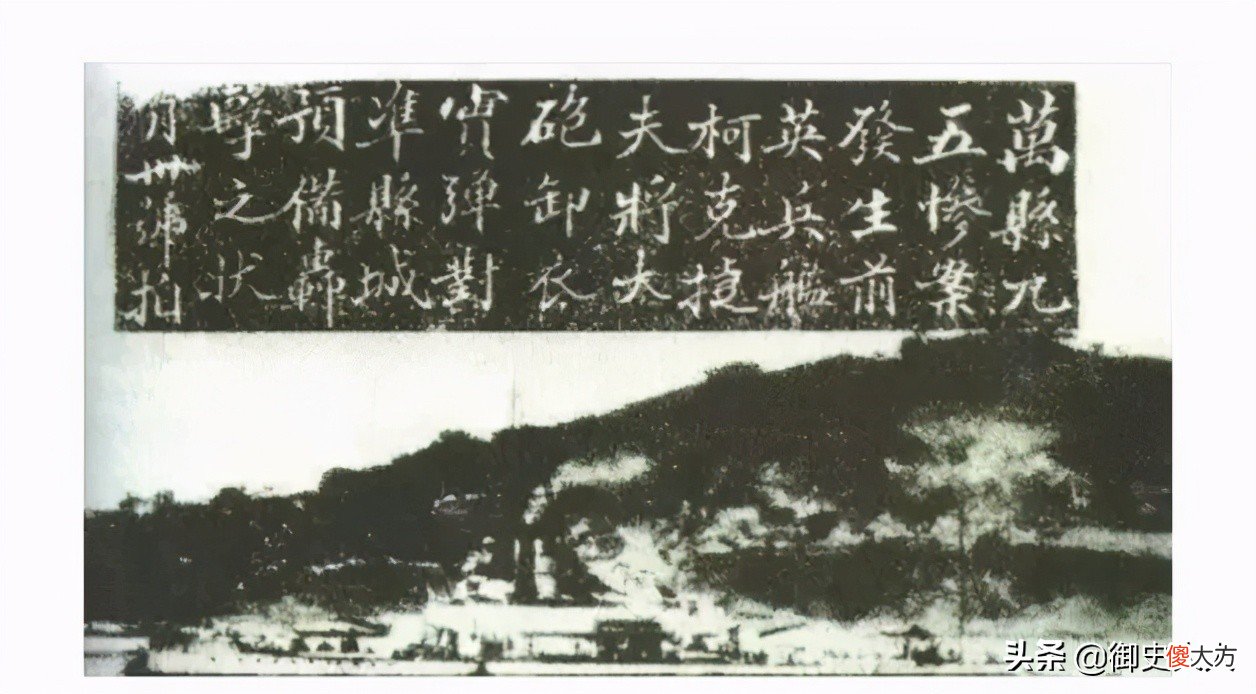 萬縣九
五慘案
發生前
英兵艦
柯克捷
夫將大
砲卸衣
實彈對
準縣城
預備轟
擊之狀
月卅號拍
头条 @御史傻大方